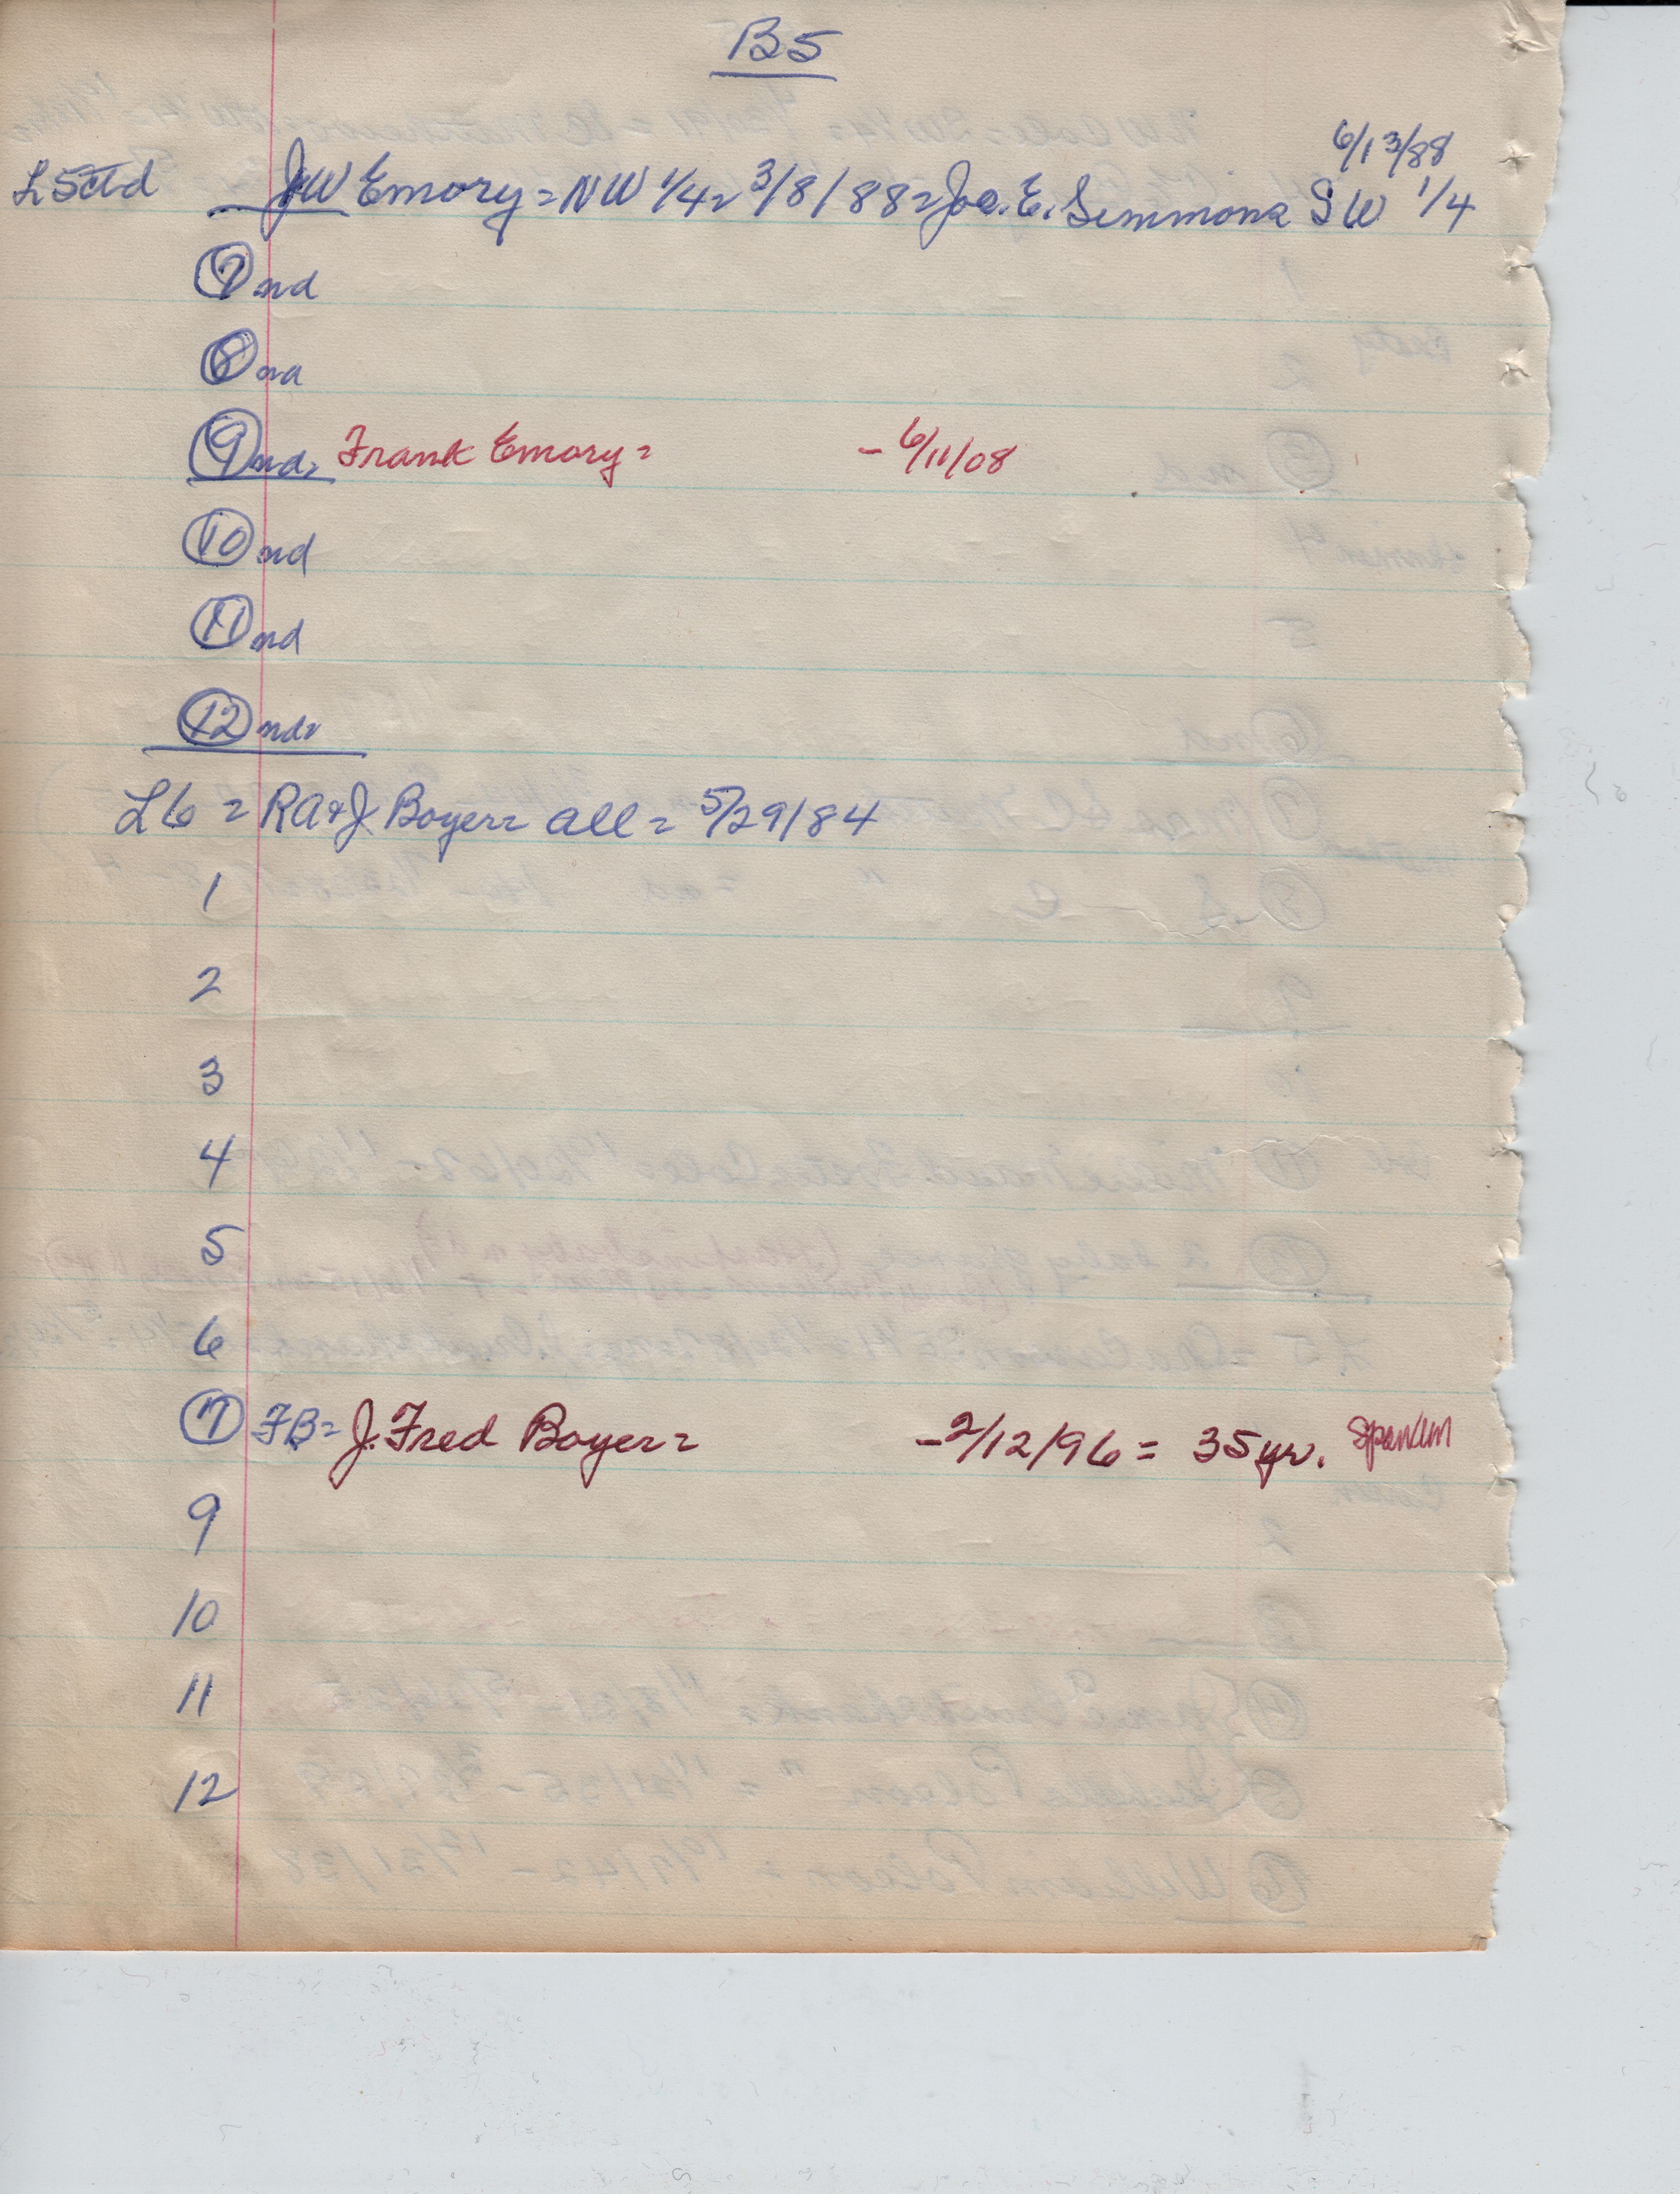 B5
6/13/88
L5ctd JW Emory = NW 1/4 = 3/8/88 = Joe. E. Simmons SW 1/4
7 nd
8 nd
9 nd = Frank Emory = - 6/11/08
10 nd
11 nd
12 nd =
L6 = RA & J Boyer = all = 5/29/84
1
2
3
4
5
6
7 FB = J. Fred Boyer = - 2/12/96 = 35 yr.
9
10
11
12